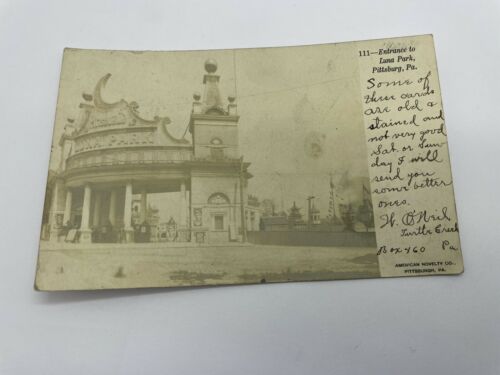 111—Entrance to
Luna Park,
Pittsburg, Pa.
Some of
these cards
are old &
stained and
not very good
Sat. or Sun-
day I will
send you
some better
ones.
W. O'Neil
Turtle Creek
Box 460 Pa
AMERICAN NOVELTY CO.,
PITTSBURGH, PA.